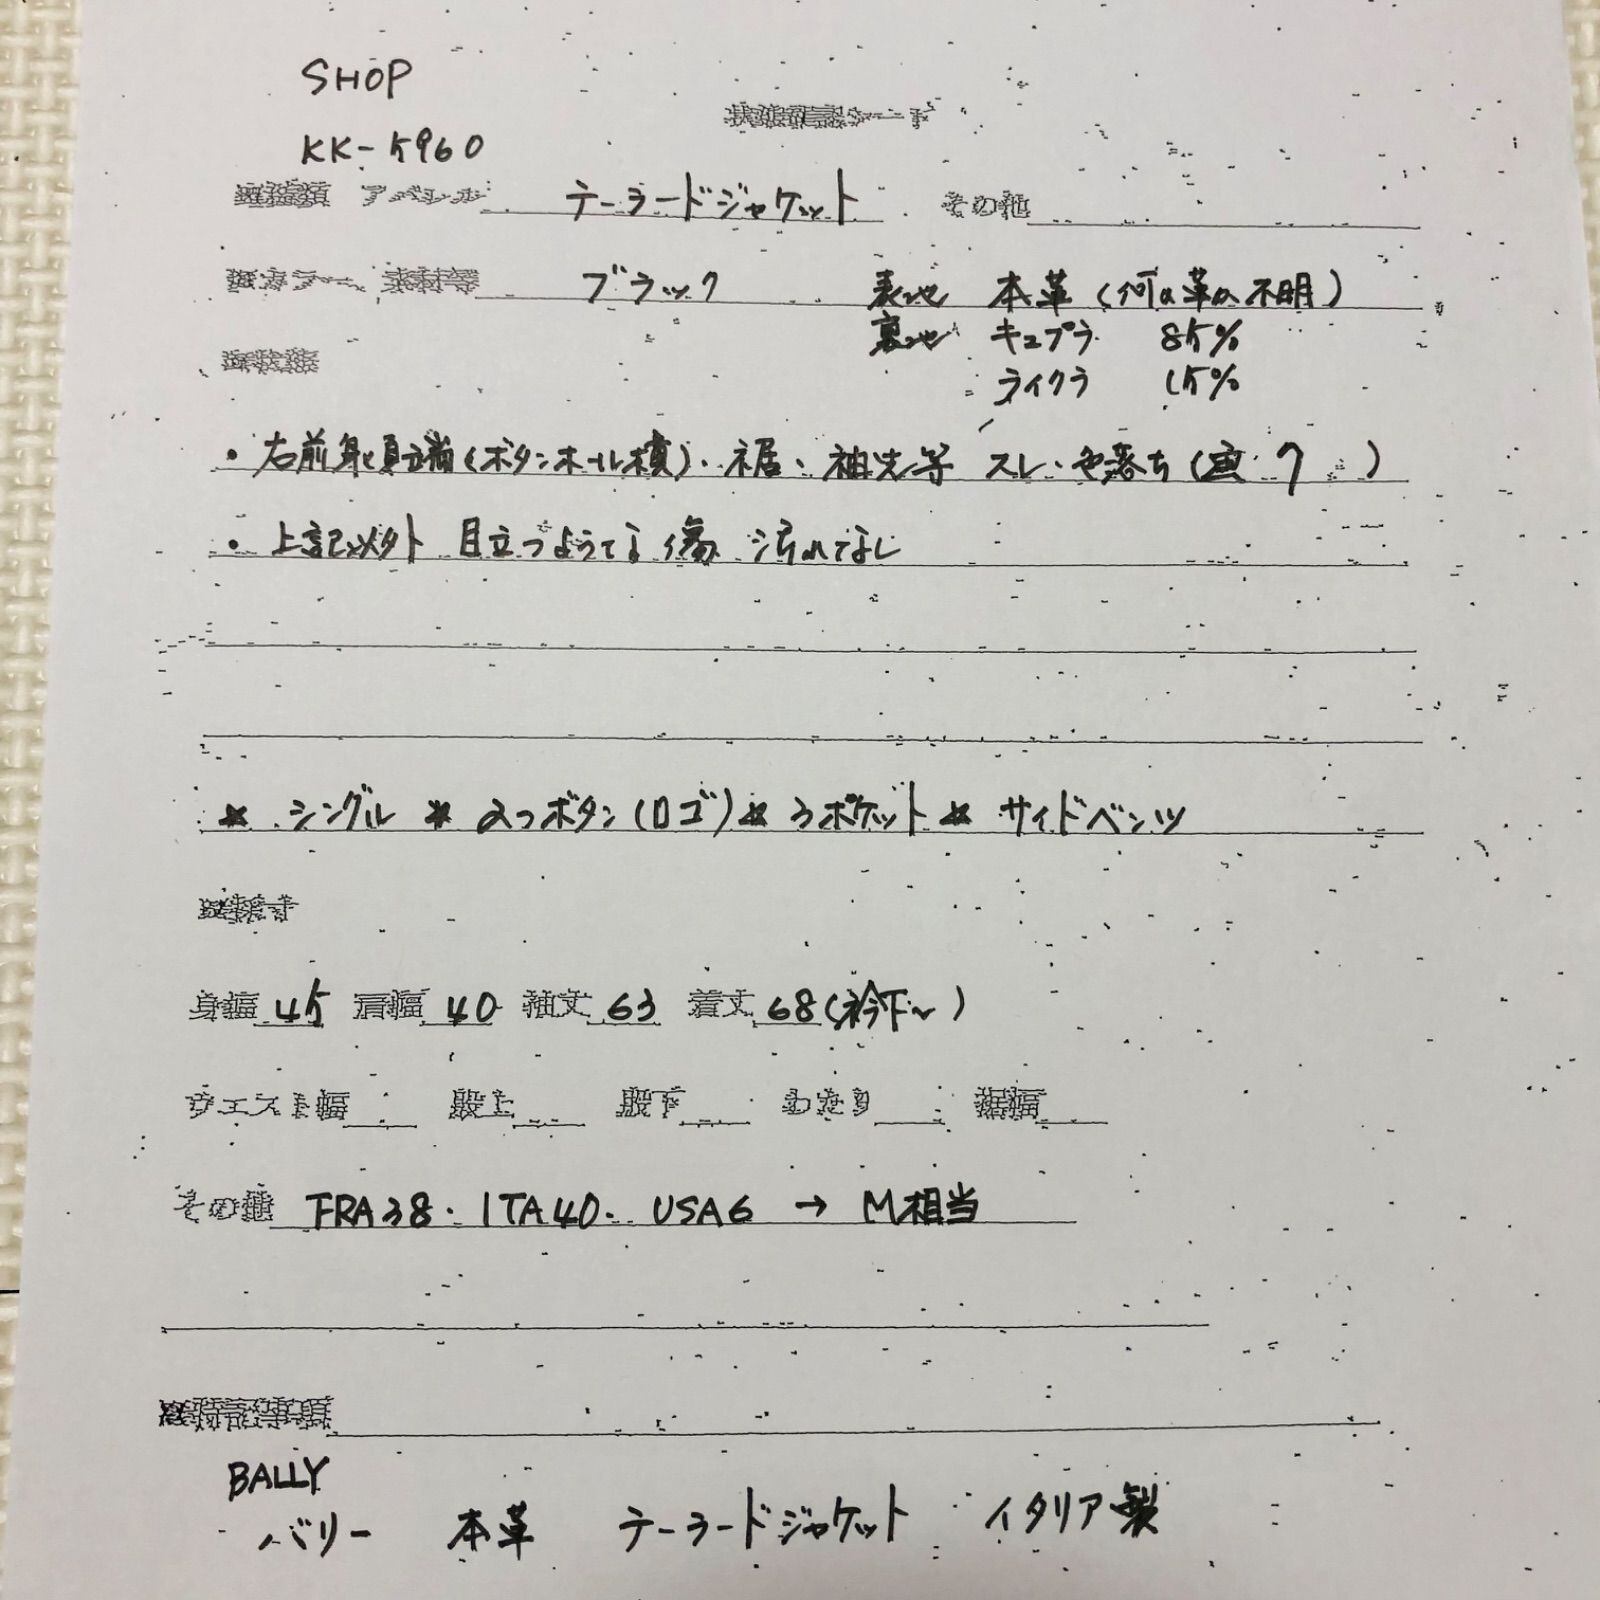 SHOP
シート
KK-5960
アパレル テーラードジャケット その他
カラー 素材等 ブラック 表地 本革(何の革か不明)
裏地 キュプラ 85%
ライクラ 15%
・右前身頃端(ボタンホール横)・裾・袖先等 スレ・色落ち(画 7 )
・上記以外 目立つような傷 汚れなし
* シングル * 2つボタン(ロゴ) * 3ポケット * サイドベンツ
身幅 45 肩幅 40 袖丈 63 着丈 68(衿下~)
ウエスト幅 股上 股下 わたり 裾幅
その他 FRA38・ITA40・USA6 → M相当
特記事項
BALLY
バリー 本革 テーラードジャケット イタリア製